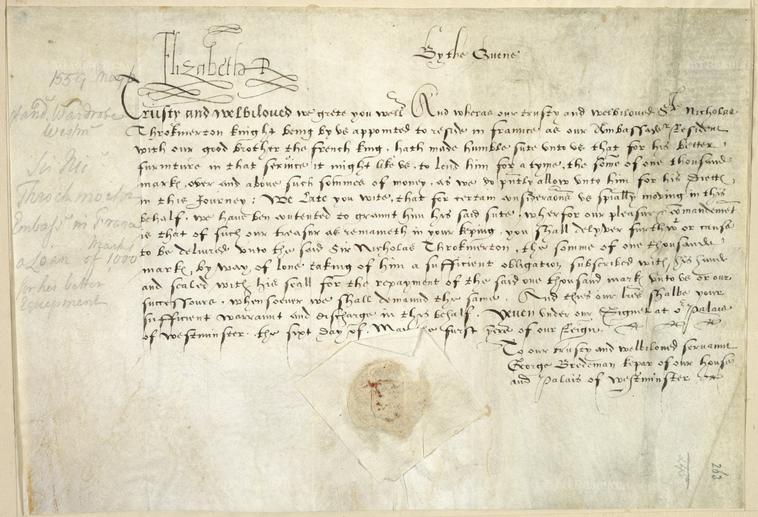 Elizabeth R
By the Quene
Trusty and welbiloved we grete you well. And wheras our trusty and welbiloved Sr Nicholas
Throkmerton knight being by vs appointed to reside in fraunce as our Ambassadr Resident
with our good brother the french king, hath made humble sute vnto vs that for his better
furniture in that seruice it might like vs, to lend him for a tyme, the some of one thousand
mark, over and aboue such sommes of money, as we do pntly allow vnto him for his Diett
in this Journey: We Late you wite, that for certain consideracons vs spially moving in this
behalf, we have ben contented to graunt him his said sute. wherfor our pleasur & comandemet
is that of such our treasur as remaineth in your keping, you shall delyver furthwt or cause
to be delivered vnto the said Sir Nicholas Throkmerton, the somme of one thousande
mark, by way of lone taking of him a sufficient obligation subscribed with his hande
and sealed with his seall for the repayment of the said one thousand mark vnto vs or our
successours, whensoever we shall demaund the same. And thies our lres shalbe your
sufficient warraunt and discharge in this behalf. yeven under our Signet at or Palais
of westminster the sixt day of Maie the first yere of our Reign.
To our trusty and welbiloved servaunt
George Bredeman kepar of our house
and Palais of westminster
1559 May
Hand. Wardrobe
Westmr
Sir Nic
Throckmorton
Embassr in France
a Loan of 1000 Marks
for his better
Equipment
263